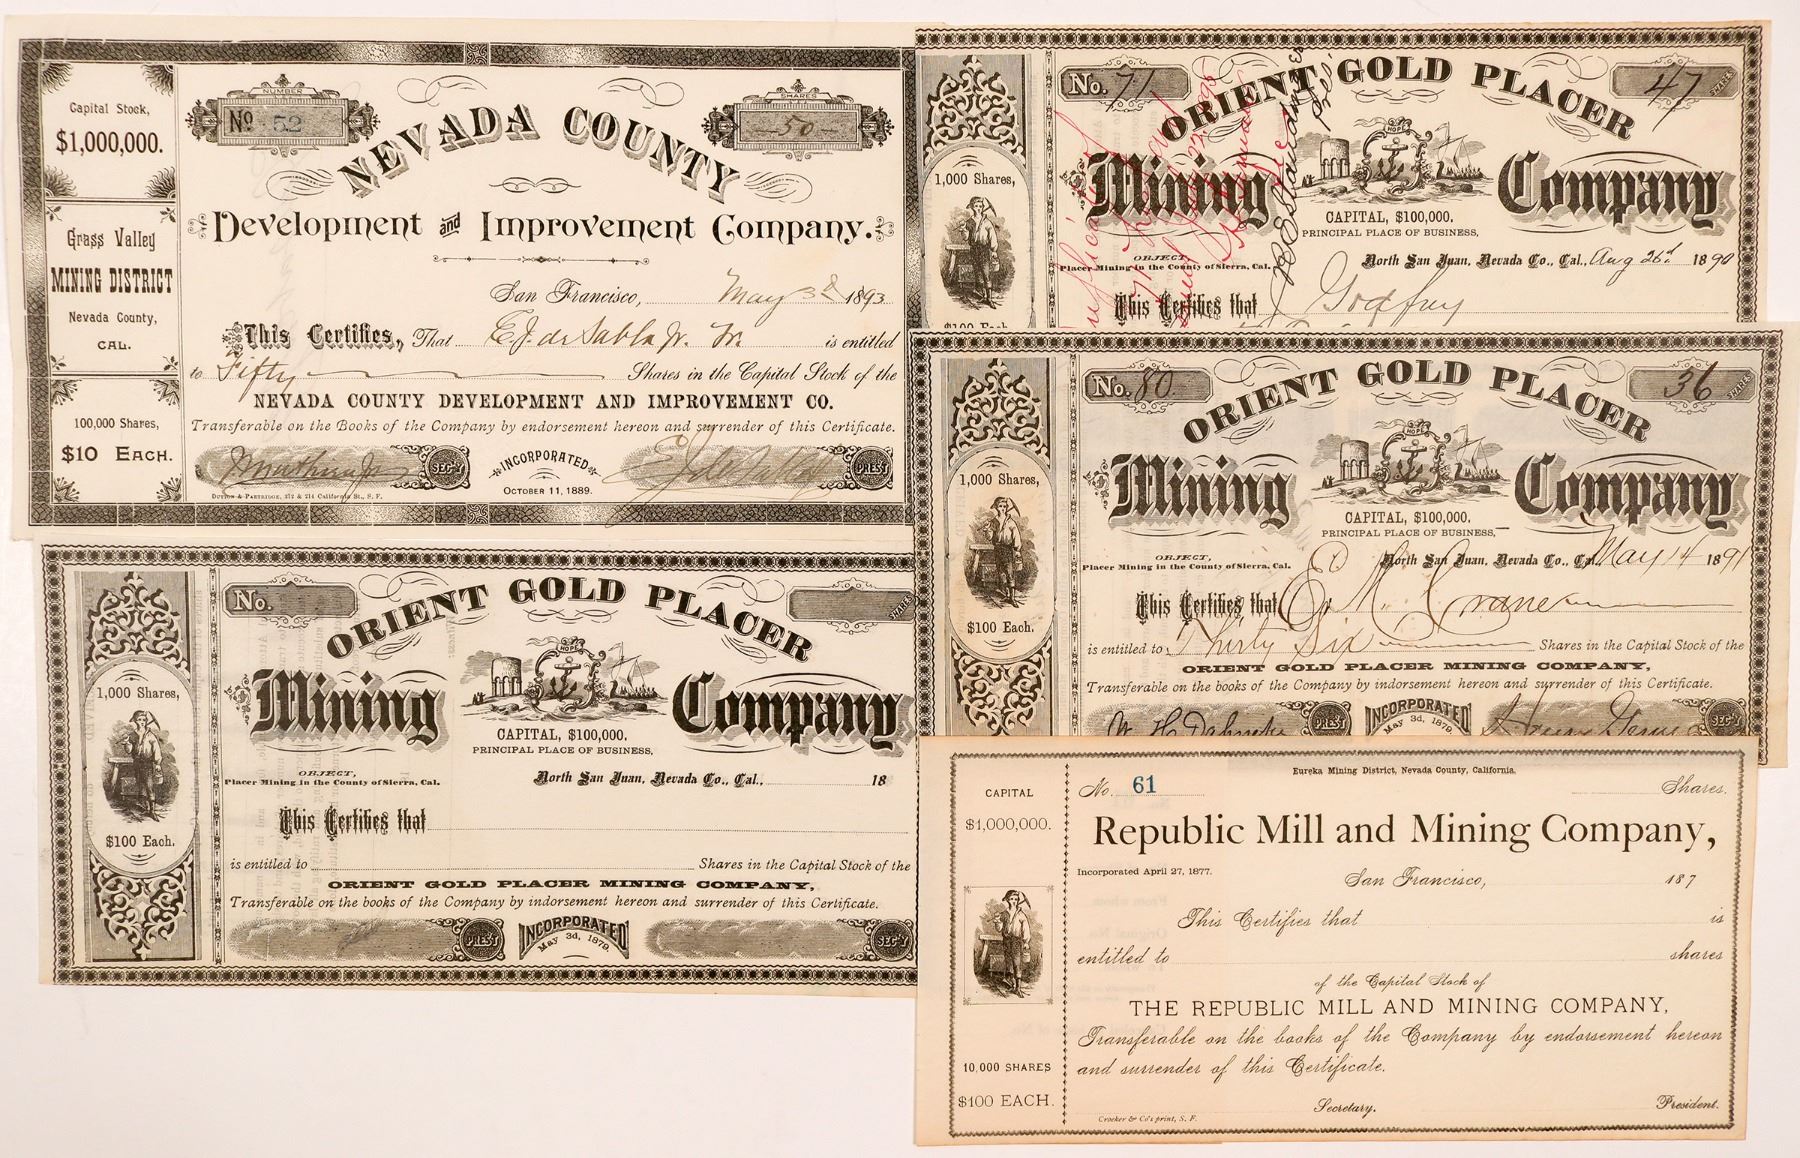 Capital Stock,
$1,000,000.
Grass Valley
MINING DISTRICT
Nevada County,
CAL.
100,000 Shares,
$10 EACH.
NUMBER
No. 52
SHARES
50
NEVADA COUNTY
Development and Improvement Company.
San Francisco, May 3d 1893
This Certifies, That E.J. de Sabla Jr. Tr. is entitled
to Fifty Shares in the Capital Stock of the
NEVADA COUNTY DEVELOPMENT AND IMPROVEMENT CO.
Transferable on the Books of the Company by endorsement hereon and surrender of this Certificate.
SEC'Y
INCORPORATED
OCTOBER 11, 1889.
PREST
DUTTON & PARTRIDGE, 212 & 214 California St., S. F.
1,000 Shares,
$100 Each
No. 71
47 SHARES
ORIENT GOLD PLACER
Mining Company
HOPE
CAPITAL, $100,000.
PRINCIPAL PLACE OF BUSINESS,
OBJECT,
Placer Mining in the County of Sierra, Cal.
North San Juan, Nevada Co., Cal., Aug 26d 1890
This Certifies that J Godfrey
1,000 Shares,
$100 Each.
No. 80
36 SHARES
ORIENT GOLD PLACER
Mining Company
HOPE
CAPITAL, $100,000.
PRINCIPAL PLACE OF BUSINESS,
OBJECT,
Placer Mining in the County of Sierra, Cal.
North San Juan, Nevada Co., Cal. May 14 1891
This Certifies that M. Crane
is entitled to Thirty Six Shares in the Capital Stock of the
ORIENT GOLD PLACER MINING COMPANY,
Transferable on the books of the Company by indorsement hereon and surrender of this Certificate.
PREST
INCORPORATED
May 3d, 1879.
SEC'Y
1,000 Shares,
$100 Each.
No.
SHARES
ORIENT GOLD PLACER
Mining Company
HOPE
CAPITAL, $100,000.
PRINCIPAL PLACE OF BUSINESS,
OBJECT,
Placer Mining in the County of Sierra, Cal.
North San Juan, Nevada Co., Cal., 18
This Certifies that
is entitled to Shares in the Capital Stock of the
ORIENT GOLD PLACER MINING COMPANY,
Transferable on the books of the Company by indorsement hereon and surrender of this Certificate.
PREST
INCORPORATED
May 3d, 1879.
SEC'Y
CAPITAL
$1,000,000.
10,000 SHARES
$100 EACH.
Eureka Mining District, Nevada County, California.
No. 61 Shares.
Republic Mill and Mining Company,
Incorporated April 27, 1877.
San Francisco, 187
This Certifies that is
entitled to shares
of the Capital Stock of
THE REPUBLIC MILL AND MINING COMPANY,
Transferable on the books of the Company by endorsement hereon
and surrender of this Certificate.
Secretary. President.
Crocker & Co's print, S. F.